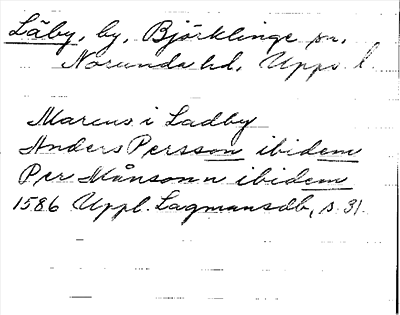 Läby, by, Björklinge sn,
Norunda hd, Upps. l.
Marcus i Ladby
Anders Persson ibidem
Per Månsonn ibidem
1586 Uppl. Lagmansdb, s. 31.